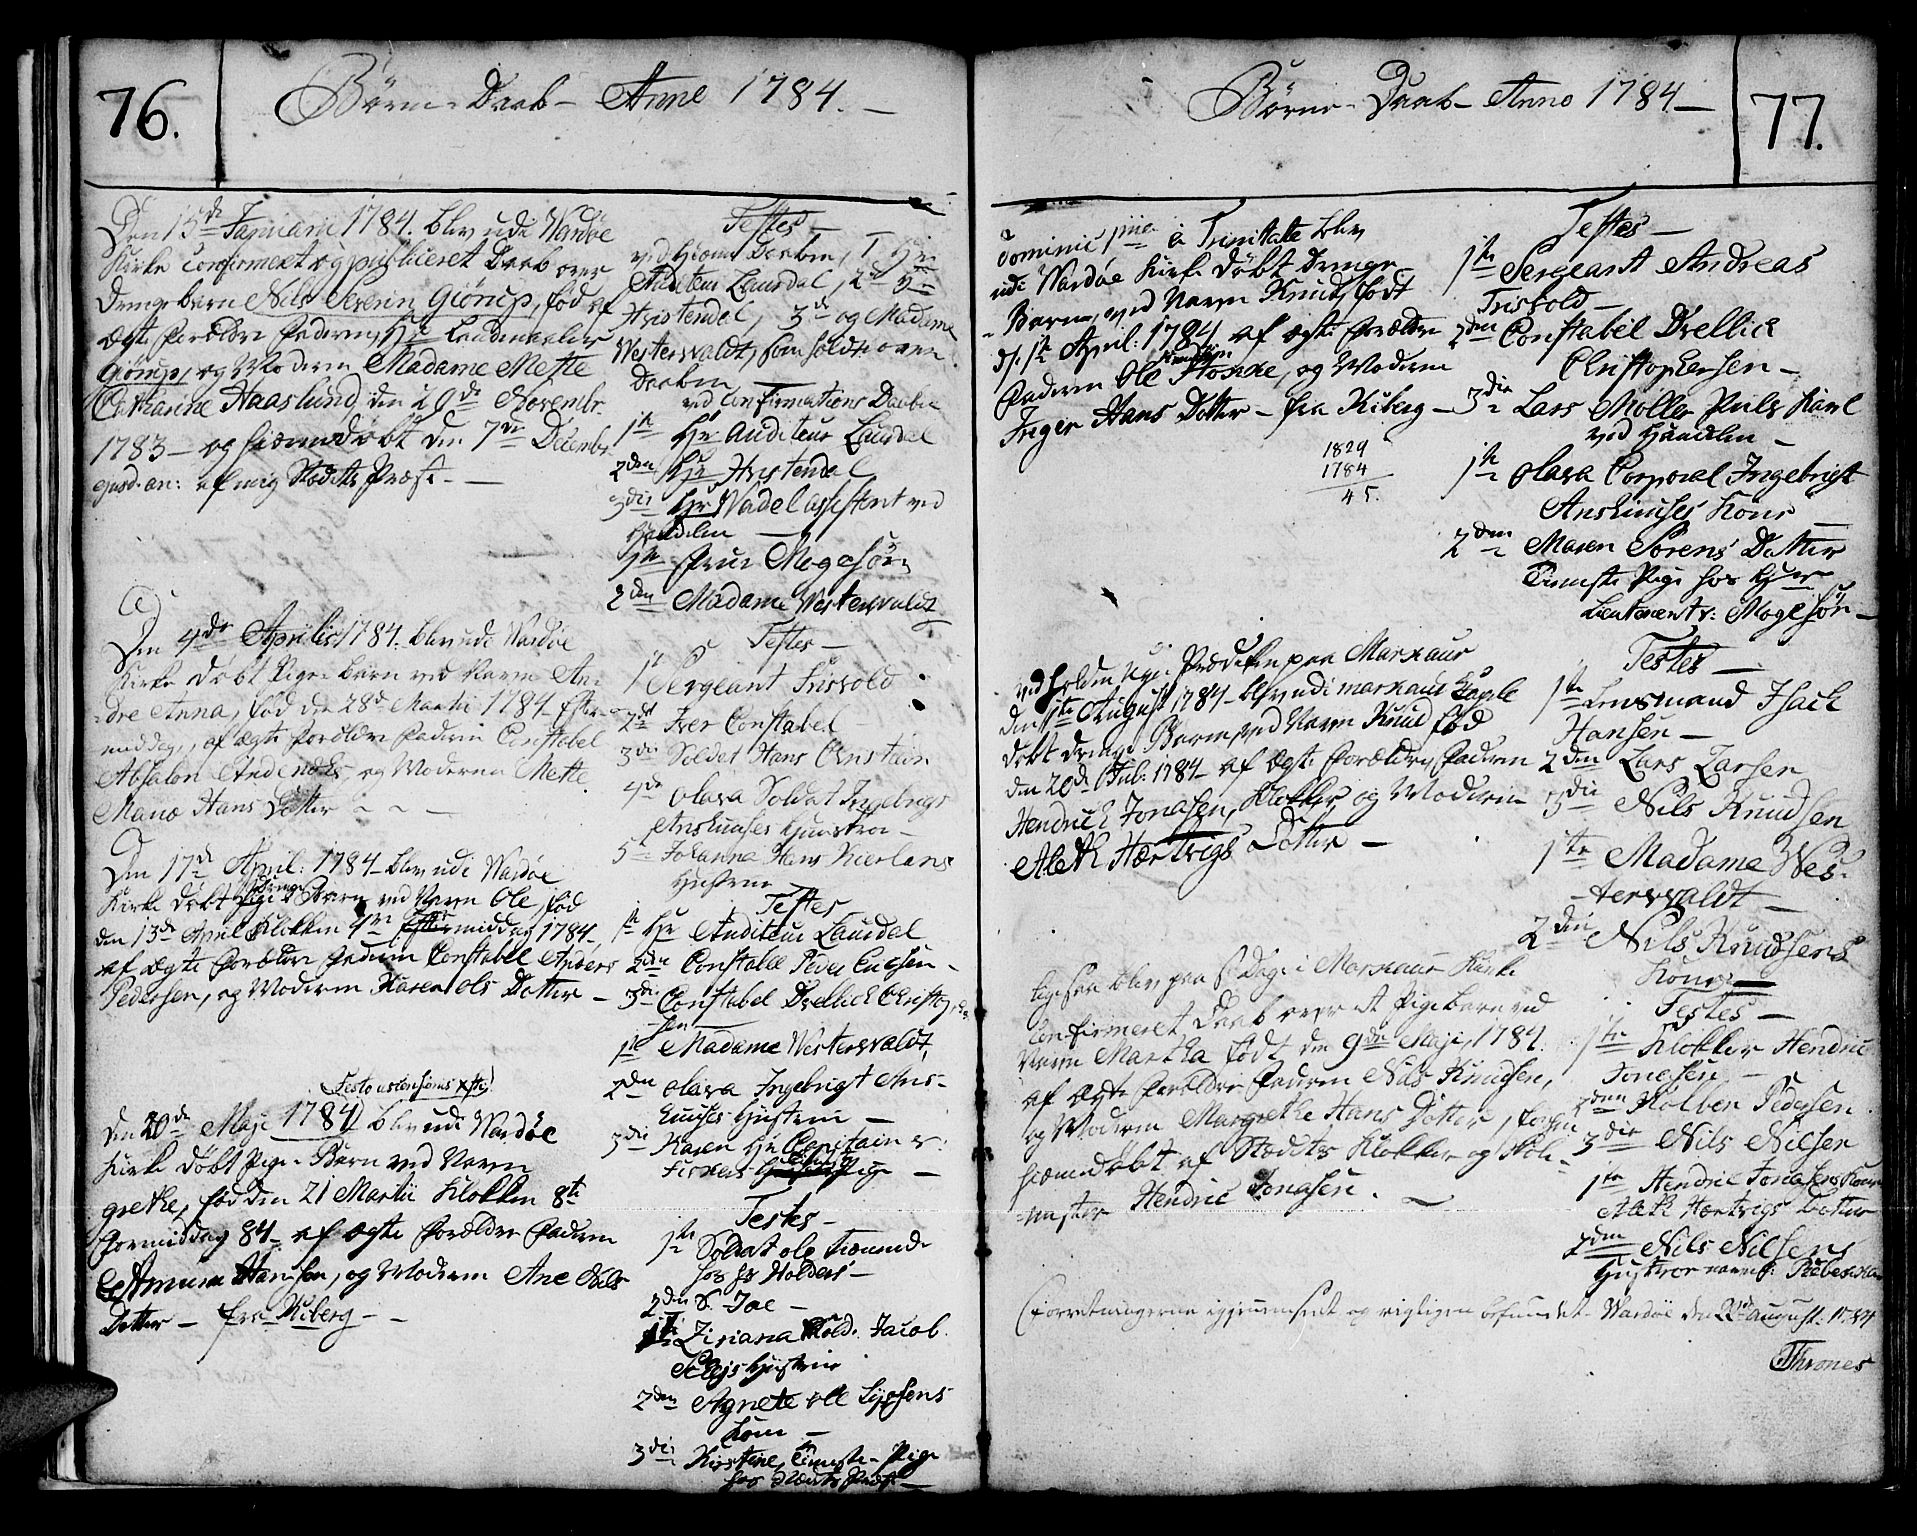 76.
Børne-Daab - Anno 1784. -
Den 15de Januarii 1784. blev udi Wardøe
Kirke confirmeret og publiceret Daab over
Drenge barn Nils Severin Giörup, fød af
Ægte Forældre Faderen, Hr
Giörup, og Moderen Madame Mette
Catharine Haaslund, den 29de Novembr.
1783 - og hiemmedøbt den 7de Decembr
ejusd. an: af mig Stædets Præst. -
Testes -
ved Hiemme Daaben, 1 Hr
Auditeur Laurdal, 2de Hr
Hvistendal, 3de og Madame
Westervaldt, som holdt over
Daaben -
ved Confirmations Daaben
1te Hr Auditeur Laurdal
2den Hr Hvistendal
3die Hr Wadel assistent ved
Handelen -
1te Frue Mogesøn
2den Madame Westervaldt
Den 4de Aprilis 1784. blev udi Wardøe
Kirke døbt Pige-barn ved Navn An-
-dre Anna, fød den 28de Martii 1784 Efter-
middag, af ægte Forældre Faderen Constabel
Absalon og Moderen Mette
Mana Hans Dotter - - -
Testes -
1te Sergeant Frisvold
2de Iver Constabel
3die Soldat Hans Ernstain
4de Olava Soldat Ingebrigt
Anshuuses Hustroe -
5te Johanna Hans Kierlans
Hustrue
Den 17de April: 1784 - blev udi Wardøe
Kirke døbt Drenge Barn ved Navn Ole, fød
den 13de April Klokken 4re Eftermiddag 1784 -
af ægte Forældre Faderen Constabel Anders
Pedersen, og Moderen Karen Ols Dotter -
Testes
1te Hr Auditeur Laurdal
2den Constabel Peder -
3die Constabel Drellich Christophersen
1te Madame Westervaldt,
2den Olava Ingebrigt Ans-
huuses Hustrue -
3die Karen Hr Capitain
Pige -
Festo ascensionis
Den 20de Maji 1784 blev udi Wardøe
Kirke døbt Pige-Barn ved Navn
grethe, fød den 21 Martii Klokken 8te
Formiddag 84 - af ægte Forældre Faderen
Amun Hansen, og Moderen Ane Nils
Dotter - fra Kiberg - -
Testes -
1te Soldat Ole
hos Hr Holders -
2den S. Joe -
1te Ziriana Sold. Jacob
Hustrue
2den Agnete Ole
Kone -
3die Kirstine, tieneste-Pige
hos Stædets Præst -
77.
Børne-Daab - Anno 1784 -
Dominic 1ma a Trinitate blev
udi Wardøe Kirke døbt Drenge
- Barn, ved Navn Knud, født
d. 1te April: 1784 af ægte Forældre
Faderen Ole Stokke, og Moderen
Inger Hans Dotter - fra Kiberg -
1829
1784
45.
Testes -
1te Sergeant Andreas
Frisvold -
2den Constabel Drellich
Christophersen -
3die Lars Møller Puls Karl
ved Handelen -
1te Olava Corporal Ingebrigt
Anshuuses Kone -
2den Maren Sørens Datter
Tieneste Pige hos Hr
Lieutenents: Mogesøn -
ved holden Uge-Prædiken paa Makaur
den 1te August 1784 - blev udi Makaur Capele
døbt Drenge-Barn, ved Navn Knud fød
den 20de Jul: 1784 - af ægte Forældre, Faderen
Hendrich Jonasen, Klokker og Moderen
Aleth Hærtvigs Dotter -
Testes -
1te Lensmand Isack
Hansen -
2den Lars Larsen
3die Nils Knudsen
1te Madame Wes-
-tervaldt -
2den Nils Knudsens
Kone -
ligesaa blev paa s. Dage i Makaur Kirke
confirmeret Daab over et Pigebarn ved
Navn Martha født den 9de Maji 1784.
af ægte Forældre Faderen Nils Knudsen,
og Moderen Margrethe Hans Dotter,
hiemdøbt af Stædets Klokker og Skole-
-mester Hendric Jonasen. -
Testes -
1te Klokker Hendric
Jonesen -
2den Holben Pedersen
3die Nils Nilsen
1te Hendric Jonasens Kone
Aleth Hærtvigs Dotter
2den Nils Nilsens
Hustroe navnl:
Forretningerne igjennemseet og rigtigen befundet. Wardøe den 22de August: 1784
Thrones